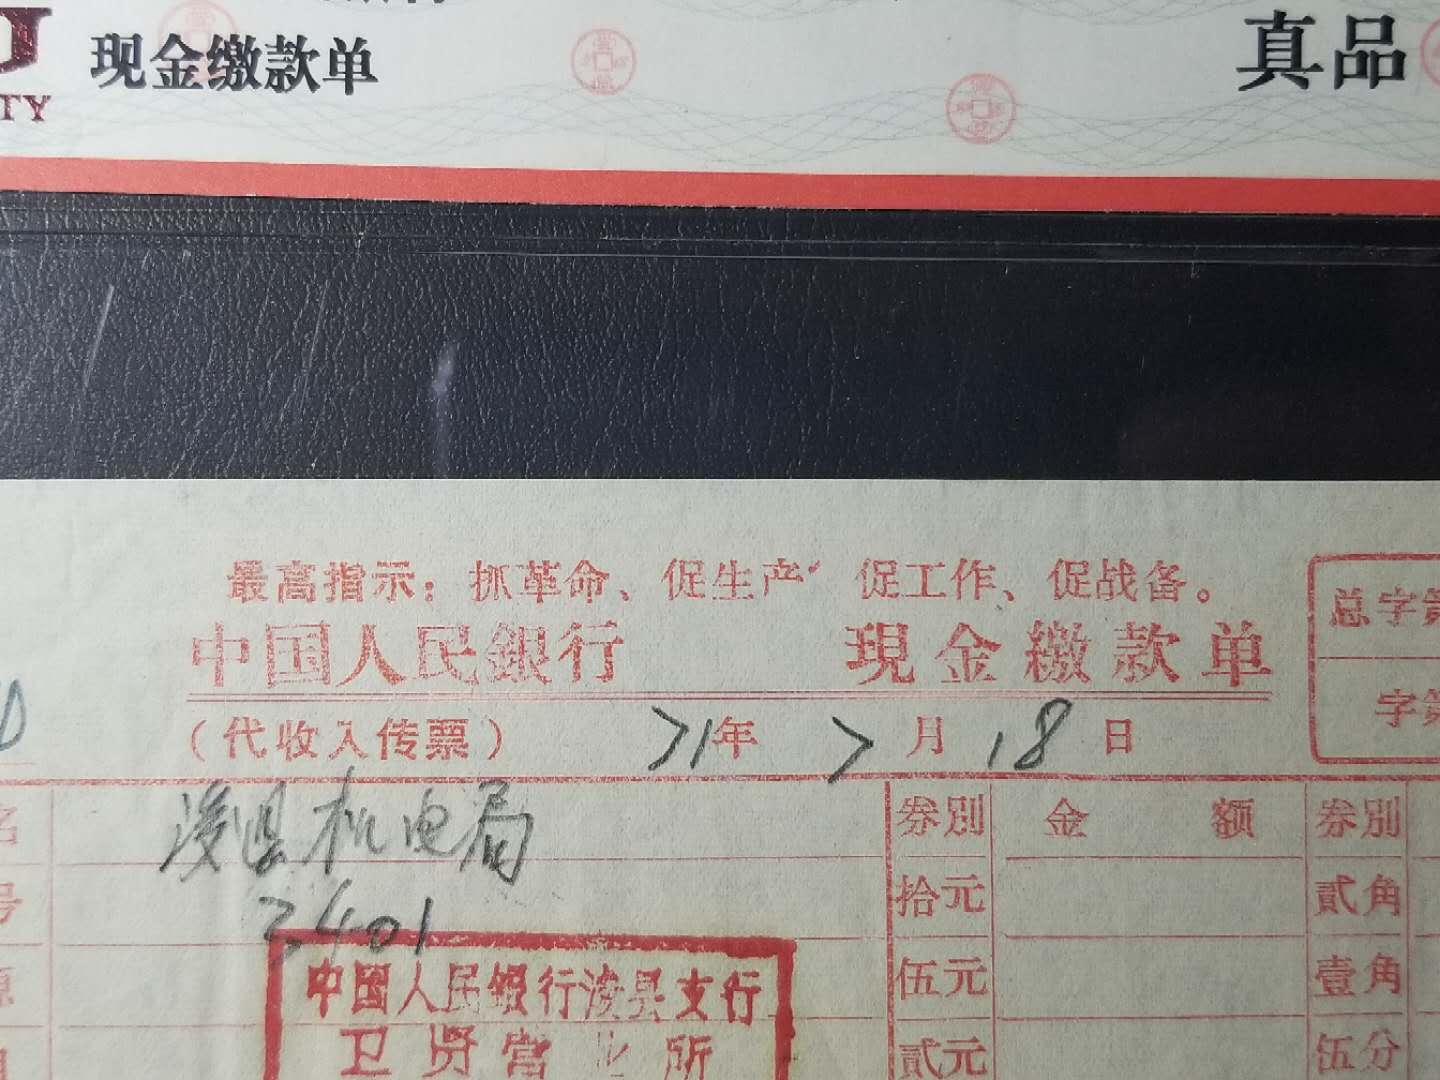 现金缴款单
真品
TY
最高指示：抓革命、促生产，促工作、促战备。
中国人民銀行 現金缴款单
总字第
字第
（代收入传票） 71年 7月 18日
名 浚县机电局 券别 金额 券别
号 2401 拾元 贰角
源 伍元 壹角
中国人民銀行浚县支行
卫贤营业所
贰元 伍分